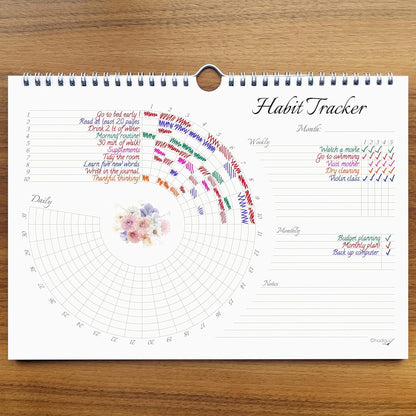 Habit Tracker
Month:
1 Go to bed early!
2 Read at least 20 pages
3 Drink 2 lt of water
4 Morning routine!
5 30 min of walk!
6 Supplements
7 Tidy the room
8 Learn five new words
9 Write in the journal
10 Thankful thinking!
Daily
1
2
3
4
5
6
7
8
9
10
11
12
13
14
15
16
17
18
19
20
21
22
23
24
25
26
27
28
29
30
31
Weekly
1 2 3 4 5
Watch a movie ✓✓✓✓
Go to swimming ✓✓✓✓
Visit mother ✓✓✓
Dry cleaning ✓✓✓✓
Violin class ✓✓✓✓
Monthly
Budget planning ✓
Monthly plan! ✓
Back up computer ✓
Notes